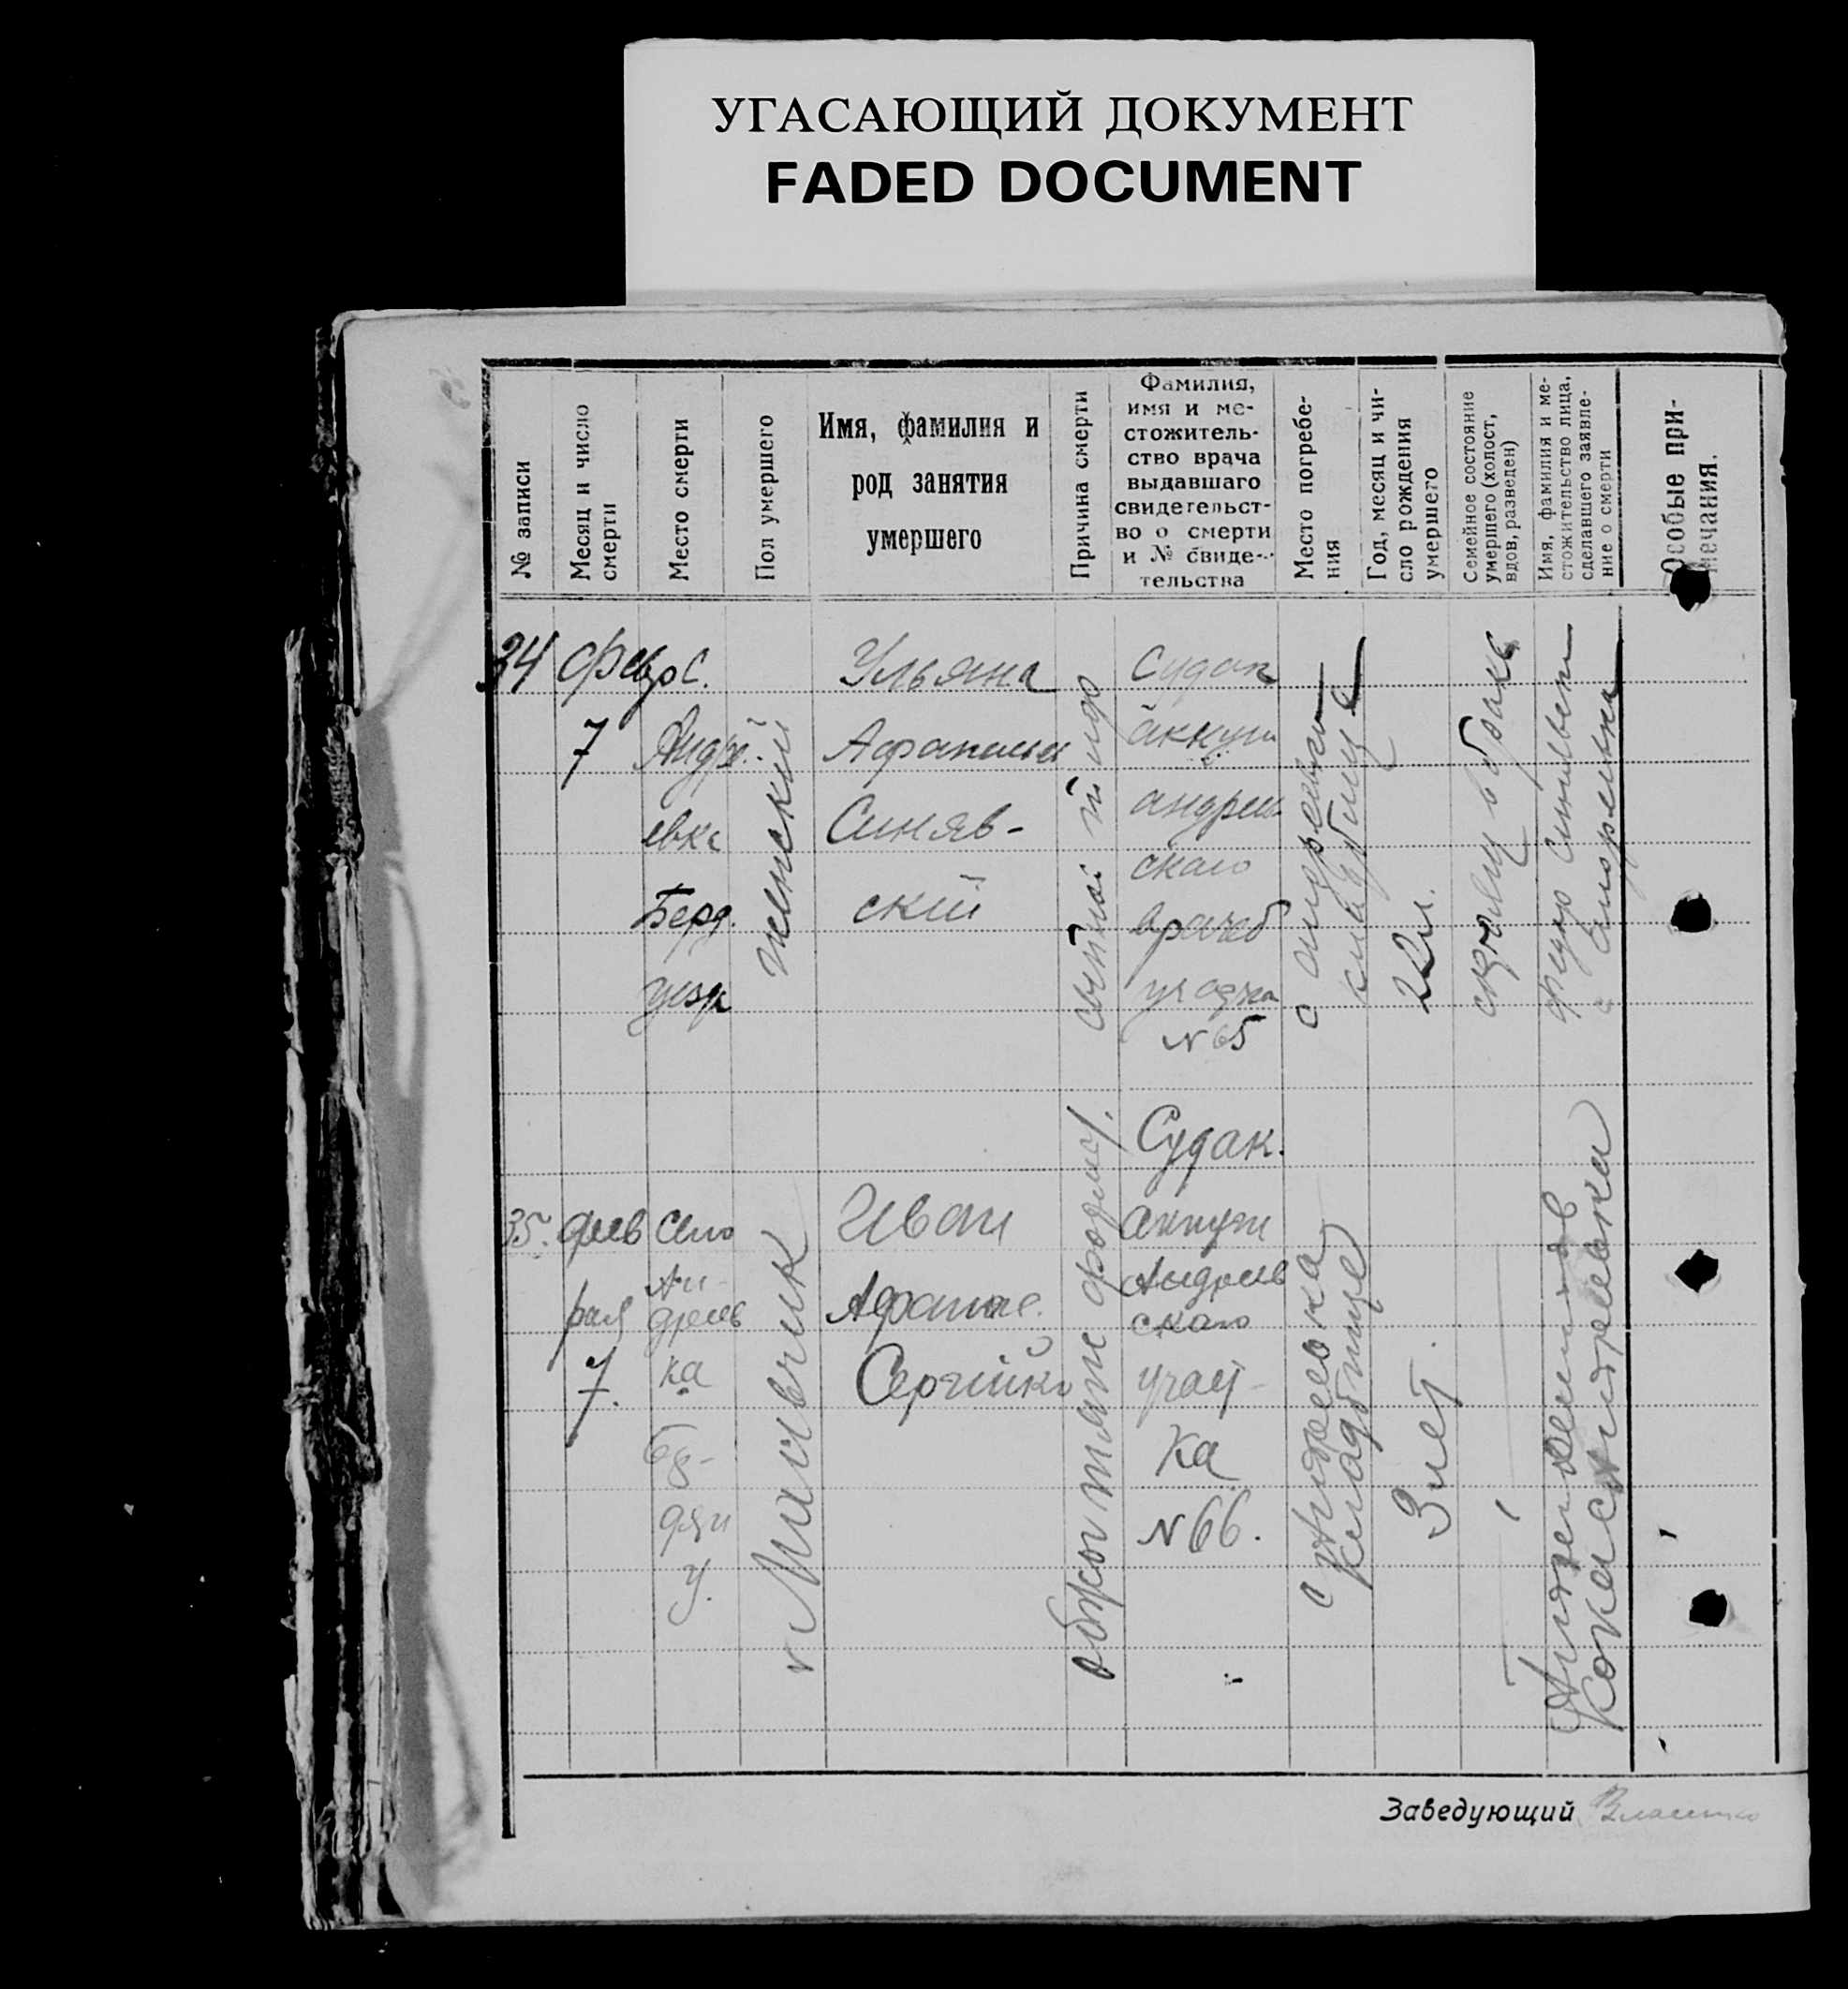 УГАСАЮЩИЙ ДОКУМЕНТ
FADED DOCUMENT
№ записи
Месяц и число
смерти
Место смерти
Пол умершего
Имя, фамилия и
род занятия
умершего
Причина смерти
Фамилия,
имя и ме-
стожитель-
ство врача
выдавшаго
свидетельст-
во о смерти
и № свиде-
тельства
Место погребе-
ния
Год, месяц и чи-
сло рождения
умершего
Семейное состояние
умершего (холост,
вдов, разведен)
Имя, фамилия и ме-
стожительство лица,
сделавшего заявле-
ние о смерти
Особые при-
мечания.
34
Февр
7
С.
Андре
евка
Берд.
уезд
женский
Ульяна
Афанасьев
Синяв-
ский
сыпной тиф
Судак
аккуш
андреев
скаго
врачеб
участка
N 65
с андреевка
кладбище
22 л.
в браке
Федор
с андреевка
35.
фев
раля
7.
Село
Ан-
дреев
ка
Бер-
дян
у.
Мальчик
Иван
Афанас.
Сергийко
Судак.
аккуш
Андреев
скаго
участ-
ка
N 66.
с Андреевка
кладбище
3 лет.
с Андреевка
Заведующий